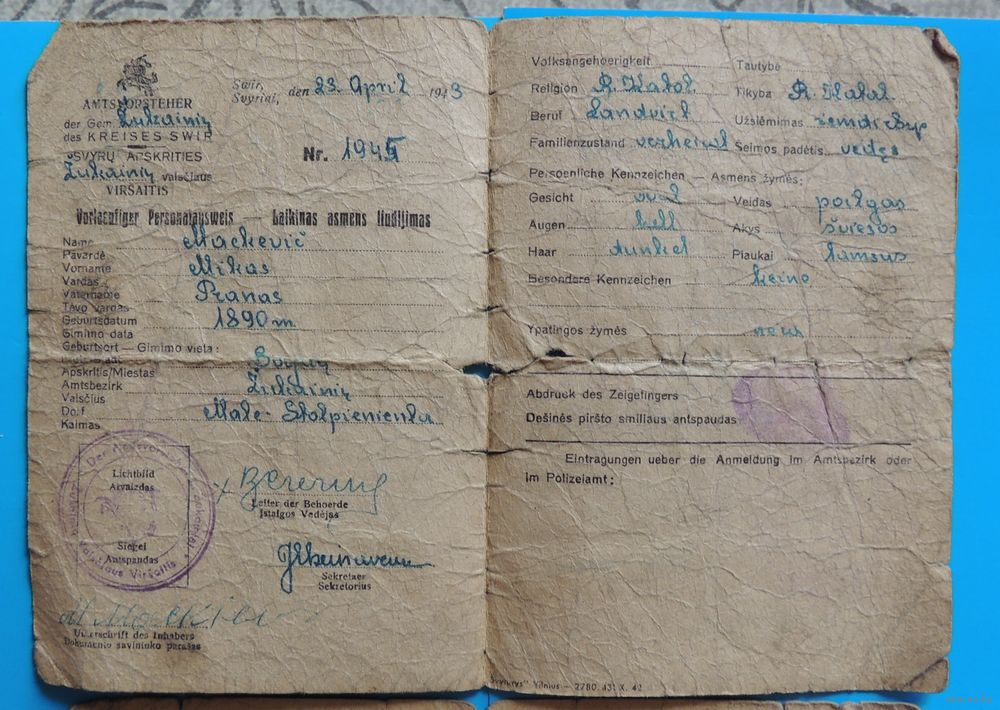 AMTSVORSTEHER
der Gem. Žukainių
des KREISES SWIR
SVYRŲ APSKRITIES
Žukainių valsčiaus
VIRŠAITIS
Swir, Svyriai, den 23. April 1943
Nr. 1945
Vorläufiger Personalausweis — Laikinas asmens liudijimas
Name Mackevič
Pavardė
Vorname Mikas
Vardas
Vatername Pranas
Tėvo vardas
Geburtsdatum 1890 m
Gimimo data
Geburtsort — Gimimo vieta:
Apskritis/Miestas
Amtsbezirk Žukainių
Valsčius
Dorf Male-Stolpienienku
Kaimas
Lichtbild
Atvaizdas
Siegel
Antspaudas
Valsčiaus Viršaitis
Leiter der Behoerde
Įstaigos Vedėjas
Sekretaer
Sekretorius
Unterschrift des Inhabers
Dokumento savininko parašas
Volksangehoerigkeit Tautybė
Religion R. Katol Tikyba R. Katal.
Beruf Landvirt Užsiėmimas zemdirbys
Familienzustand verheirat Seimos padėtis vedęs
Persoenliche Kennzeichen — Asmens žymės:
Gesicht oval Veidas pailgas
Augen hell Akys šviesos
Haar dunkel Plaukai tamsus
Besondere Kennzeichen keine
Ypatingos žymės nėra
Abdruck des Zeigefingers
Dešinės piršto smiliaus antspaudas
Eintragungen ueber die Anmeldung im Amtsbezirk oder
im Polizeiamt:
Vilnius — 2780. 431 X. 42